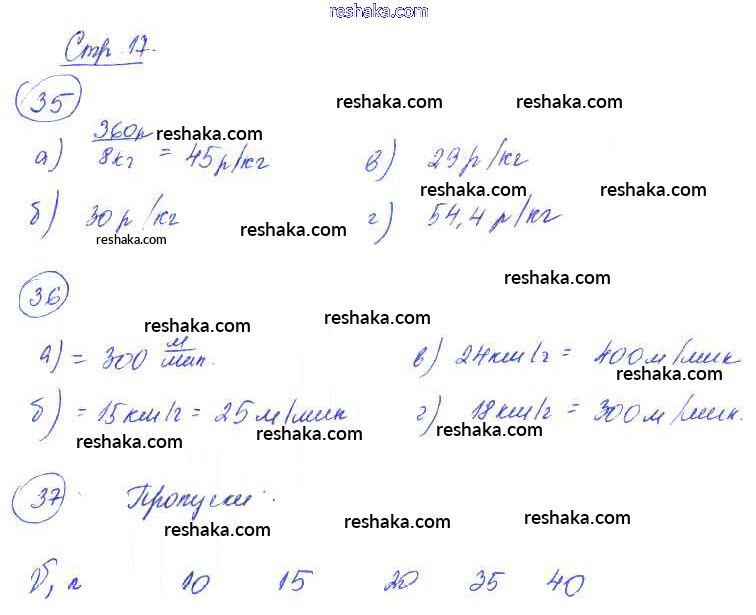 reshaka.com
Стр. 17.
35
reshaka.com reshaka.com
а) 360р/8кг = 45р/кг в) 29р/кг
reshaka.com reshaka.com
б) 30р/кг г) 54,4 р/кг
reshaka.com reshaka.com
reshaka.com
36
reshaka.com reshaka.com
а) = 300 м/мин. в) 24км/г = 400м/мин
reshaka.com
б) = 15км/г = 25 м/мин г) 18км/г = 300м/мин.
reshaka.com reshaka.com reshaka.com
37 Пропуски:
reshaka.com reshaka.com reshaka.com
10 15 20 35 40